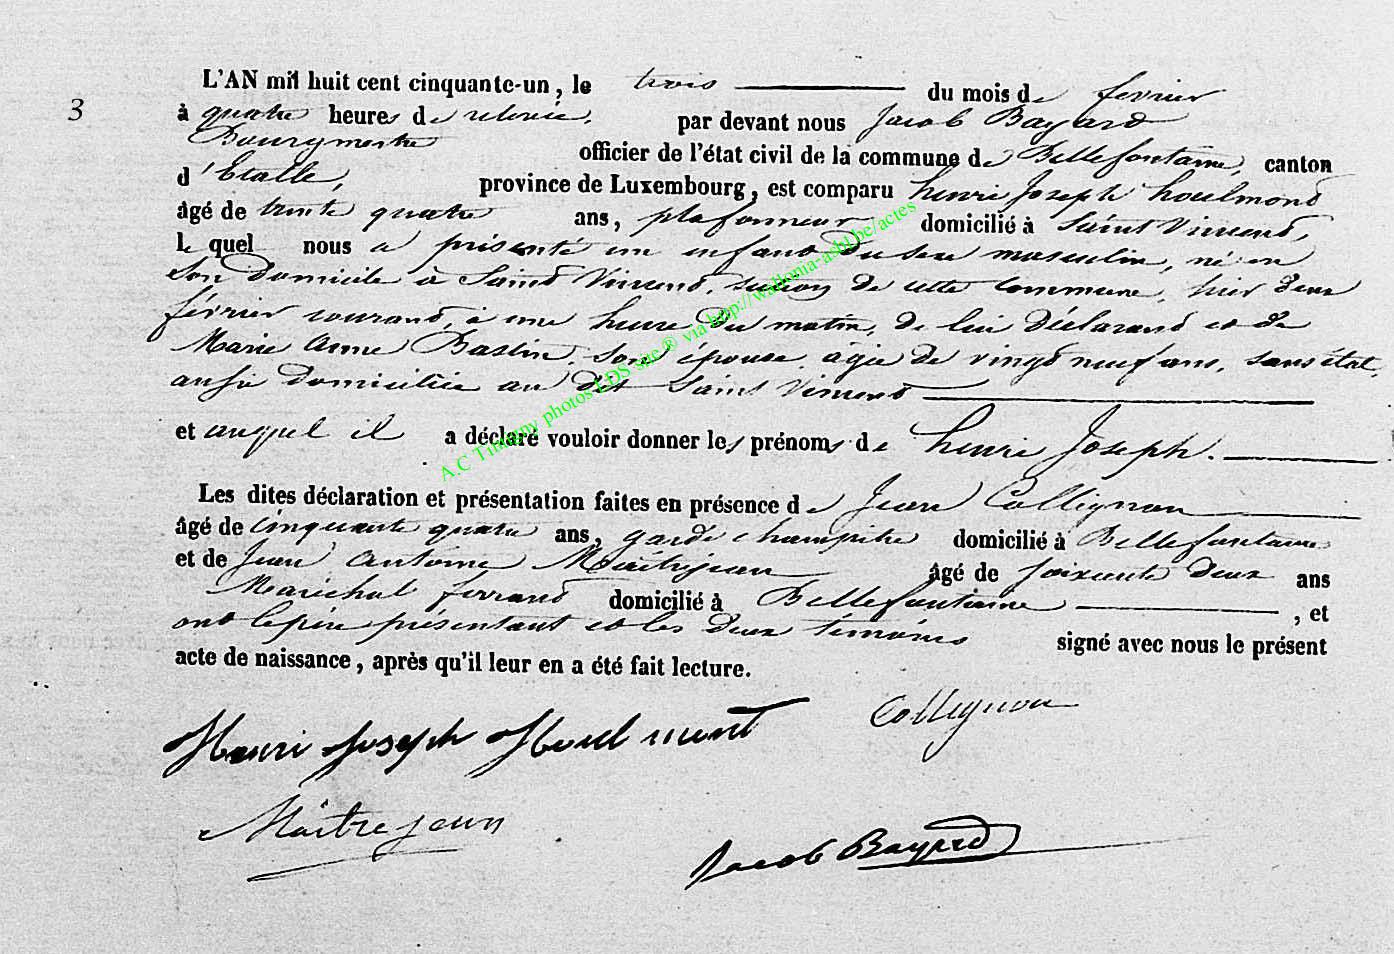 L'AN mil huit cent cinquante-un, le trois du mois de fevrier
3
à quatre heures de relevée, par devant nous Jacob Bayard
Bourgmestre officier de l'état civil de la commune de Bellefontaine, canton
d'Etalle, province de Luxembourg, est comparu henri Joseph houlmond
âgé de trente quatre ans, plafonneur domicilié à Saint Vincend,
le quel nous a présenté un enfant du sexe masculin, né en
son domicile à Saind Vincend, section de cette Commune, hier deux
février courand, à une heure du matin, de lui déclarand et de
Marie Anne Baslin, son épouse, agée de vingd neuf ans, sans état,
aussi domiciliée au dit Saint Vincend
et auquel il a déclaré vouloir donner les prénoms de henri Joseph.
Les dites déclaration et présentation faites en présence de Jean Collignon
âgé de cinquante quatre ans, garde champêtre domicilié à Bellefontaine
et de Jean Antoine Maîtrejean âgé de soixante deux ans
Maréchal ferrand domicilié à Bellefontaine, et
ont le père présentant et les deux témoins signé avec nous le présent
acte de naissance, après qu'il leur en a été fait lecture.
Henri Joseph Houlmont Collignon
Maitrejean
Jacob Bayard
A.C Tintigny photos LDS site ® via http://wallonia-asbl.be/actes